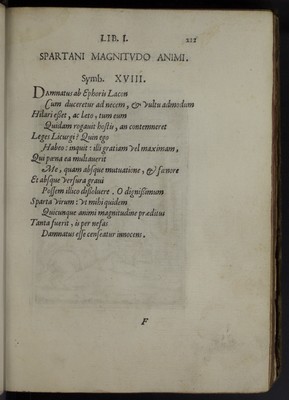 LIB. I.
SPARTANI MAGNITVDO ANIMI.
Symb. XVIII.
Damnatus ab Ephoris Lacon
Cum duceretur ad necem, & vultu admodum
Hilari esset, ac læto, tum eum
Quidam rogauit hostis, an contemneret
Leges Licurgi? Quin ego
Habeo: inquit: illi gratiam vel maximam,
Qui pœna ea multauerit
Me, quam absque mutuatione, & fœnore
Et absque versura graui
Possem illico dissoluere. O dignissimum
Sparta virum: vt mihi quidem
Quicunque animi magnitudine præditus
Tanta fuerit, is per nefas
Damnatus esse censeatur innocens.
F